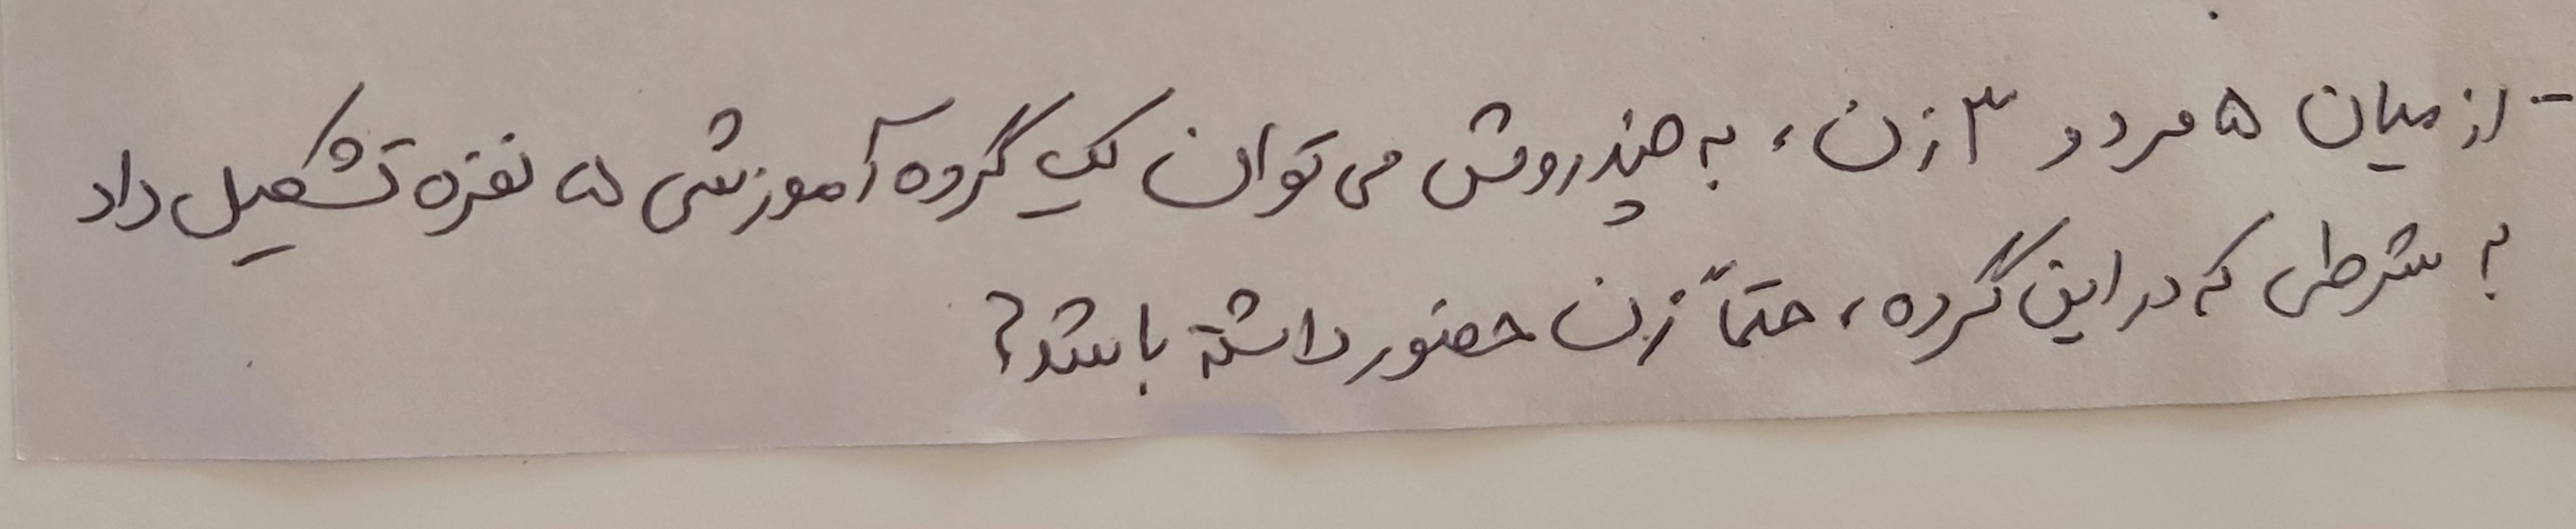 - از میان ۵ مرد و ۳ زن، به چند روش می توان یک گروه آموزشی ۵ نفره تشکیل داد
به شرطی که در این گروه، حتماً زن حضور داشته باشد؟